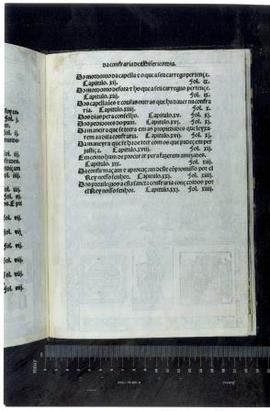 da confraria de Misericordia.
Do mordomo da capella z o que a seu carrego pertẽçe.
Capitulo. xij. Fol. ix.
Do mordomo de fora z ho que a seu carrego pertẽçe.
Capitulo. xiij. Fol. ix.
Dos capellães z cousas outras que ha dauer na confra
ria. Capitulo. xiiij. Fol. x.
Dos dias pera conselho. Capitulo. xv. Fol. xj.
Dos pedidores do pam. Capitulo. xvj. Fol. xj.
Da maneira que se tera em as propiedades que leyxa
rem a a dita confraria. Capitulo. xvij. Fol. xj.
Da maneyra que se ha de ter com os que padeçem per
justiça. Capitulo. xviij. Fol. xij.
Em como ham de procurar pera fazerem amizades.
Capitulo. xix. Fol. xij.
Da confirmaçam z aprouaçam deste cõpromisso per el
Rey nosso senhor. Capitulo. xx. Fol. xiij.
Dos preuilegios a esta sancta confraria conçedidos per
el Rey nosso senhor. Capitulo. xxj. Fol. xiij.